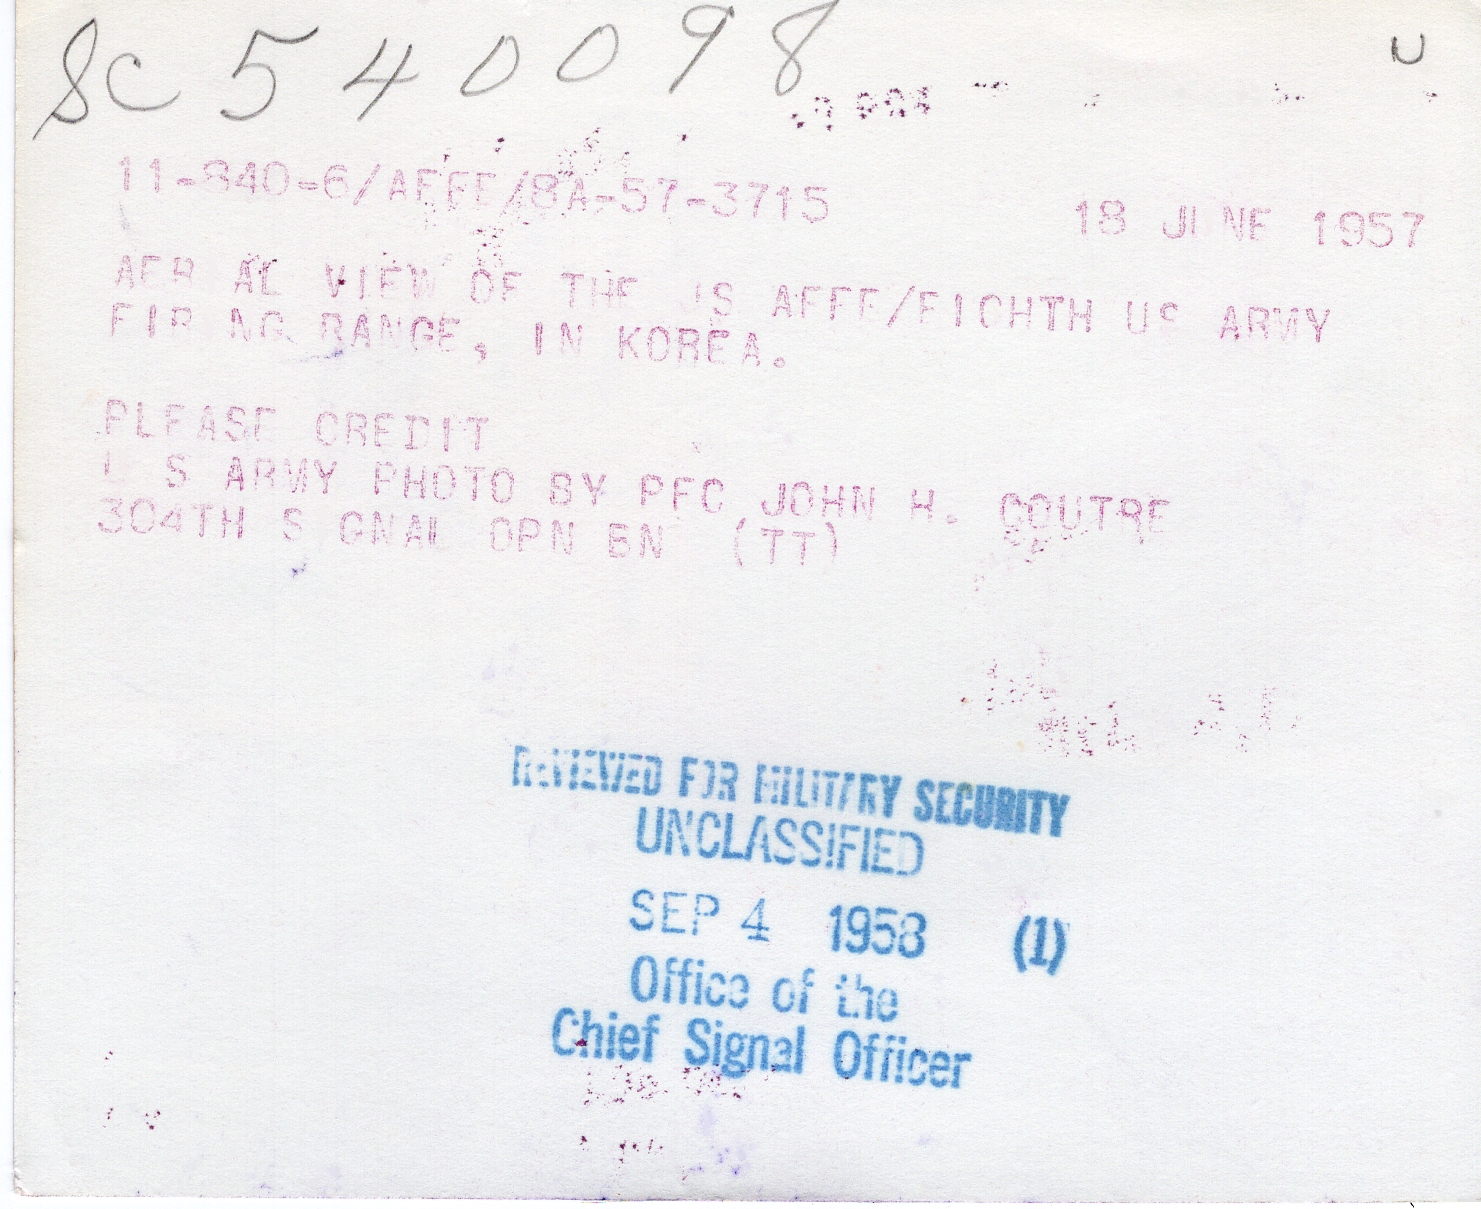 SC 540098
U
11-840-6/AFFE/8A-57-3715 18 JUNE 1957
AERIAL VIEW OF THE US AFFE/EIGHTH US ARMY
FIRING RANGE, IN KOREA.
PLEASE CREDIT
U S ARMY PHOTO BY PFC JOHN H. COUTRE
304TH SIGNAL OPN BN (TT)
REVIEWED FOR MILITARY SECURITY
UNCLASSIFIED
SEP 4 1958 (1)
Office of the
Chief Signal Officer